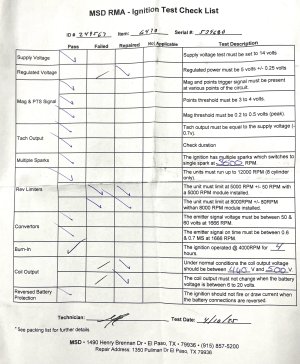 MSD RMA - Ignition Test Check List
ID # Item: 6470 Serial #:
Pass Failed Repaired Not Applicable Test Description
Supply Voltage
Supply voltage test must be set to 14 volts
Regulated Voltage
Regulated power must be 5 volts +/- 0.25 volts
Mag & PTS Signal
Mag and points trigger signal must be present
at various points of the circuit.
Points threshold must be 3 to 4 volts
Mag threshold must be 0.2 to 0.5 volts (peak).
Tach Output
Tach output must be equal to the supply voltage (-
0.7v).
Check duration
Multiple Sparks
The ignition has multiple sparks which switches to
single spark at RPM.
The units must run up to 12000 RPM (8 cylinder
only).
Rev Limiters
The unit must limit at 5000 RPM +/- 50 RPM with
a 5000 RPM module installed.
The unit must limit at 8000RPM +/- 80RPM
within 8000 RPM module installed.
Convertors
The emitter signal voltage must be between 50 &
60 volts at 1666 RPM.
The emitter signal on time must be between 0.6
& 0.7 MS at 1666 RPM.
Burn-In
The ignition operated @ 4000RPM for 4
hours.
Coil Output
Under normal conditions the coil output voltage
should be between 460 V and 500 V
The coil output must not change when the battery
voltage is between 6 to 20 volts.
Reversed Battery
Protection
The ignition should not fire or draw current when
the battery connections are reversed.
Technician: Test Date: 4/10/05
*See packing list for further details
MSD • 1490 Henry Brennan Dr • El Paso, TX • 79936 • (915) 857-5200
Repair Address: 1350 Pullman Dr El Paso, TX • 79936